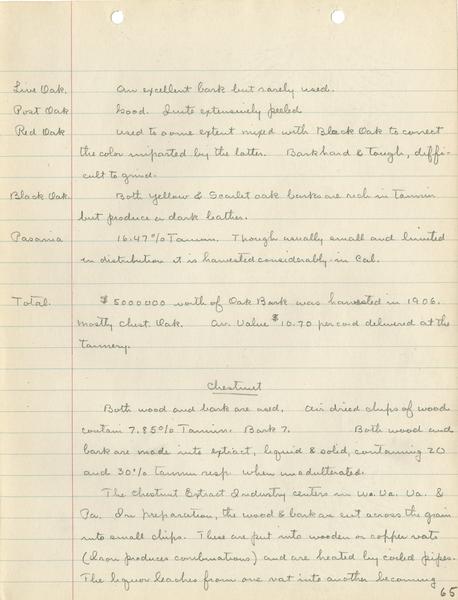 Live Oak. An excellent bark but rarely used.
Post Oak Good. Quite extensively peeled
Red Oak Used to some extent mixed with Black Oak to correct
the color imparted by the latter. Bark hard & tough, diffi-
cult to grind.
Black Oak. Both Yellow & Scarlet oak barks are rich in Tannin
but produce a dark leather.
Pasania 16.47% Tannin. Though usually small and limited
in distribution it is harvested considerably in Cal.
Total. $5000000 worth of Oak Bark was harvested in 1906.
mostly Chest. Oak. Av. Value $10.70 per cord delivered at the
tannery.
Chestnut
Both wood and bark are used. Air dried chips of wood
contain 7.85% Tannin. Bark 7. Both wood and
bark are made into extract, liquid & solid, containing 20
and 30% tannin resp. when unadulterated.
The Chestnut Extract Industry centers in W. Va. Va. &
Pa. In preparation, the wood & bark are cut across the grain
into small chips. These are put into wooden or copper vats
(Iron produces combinations) and are heated by coiled pipes.
The liquor leaches from one vat into another becoming
65